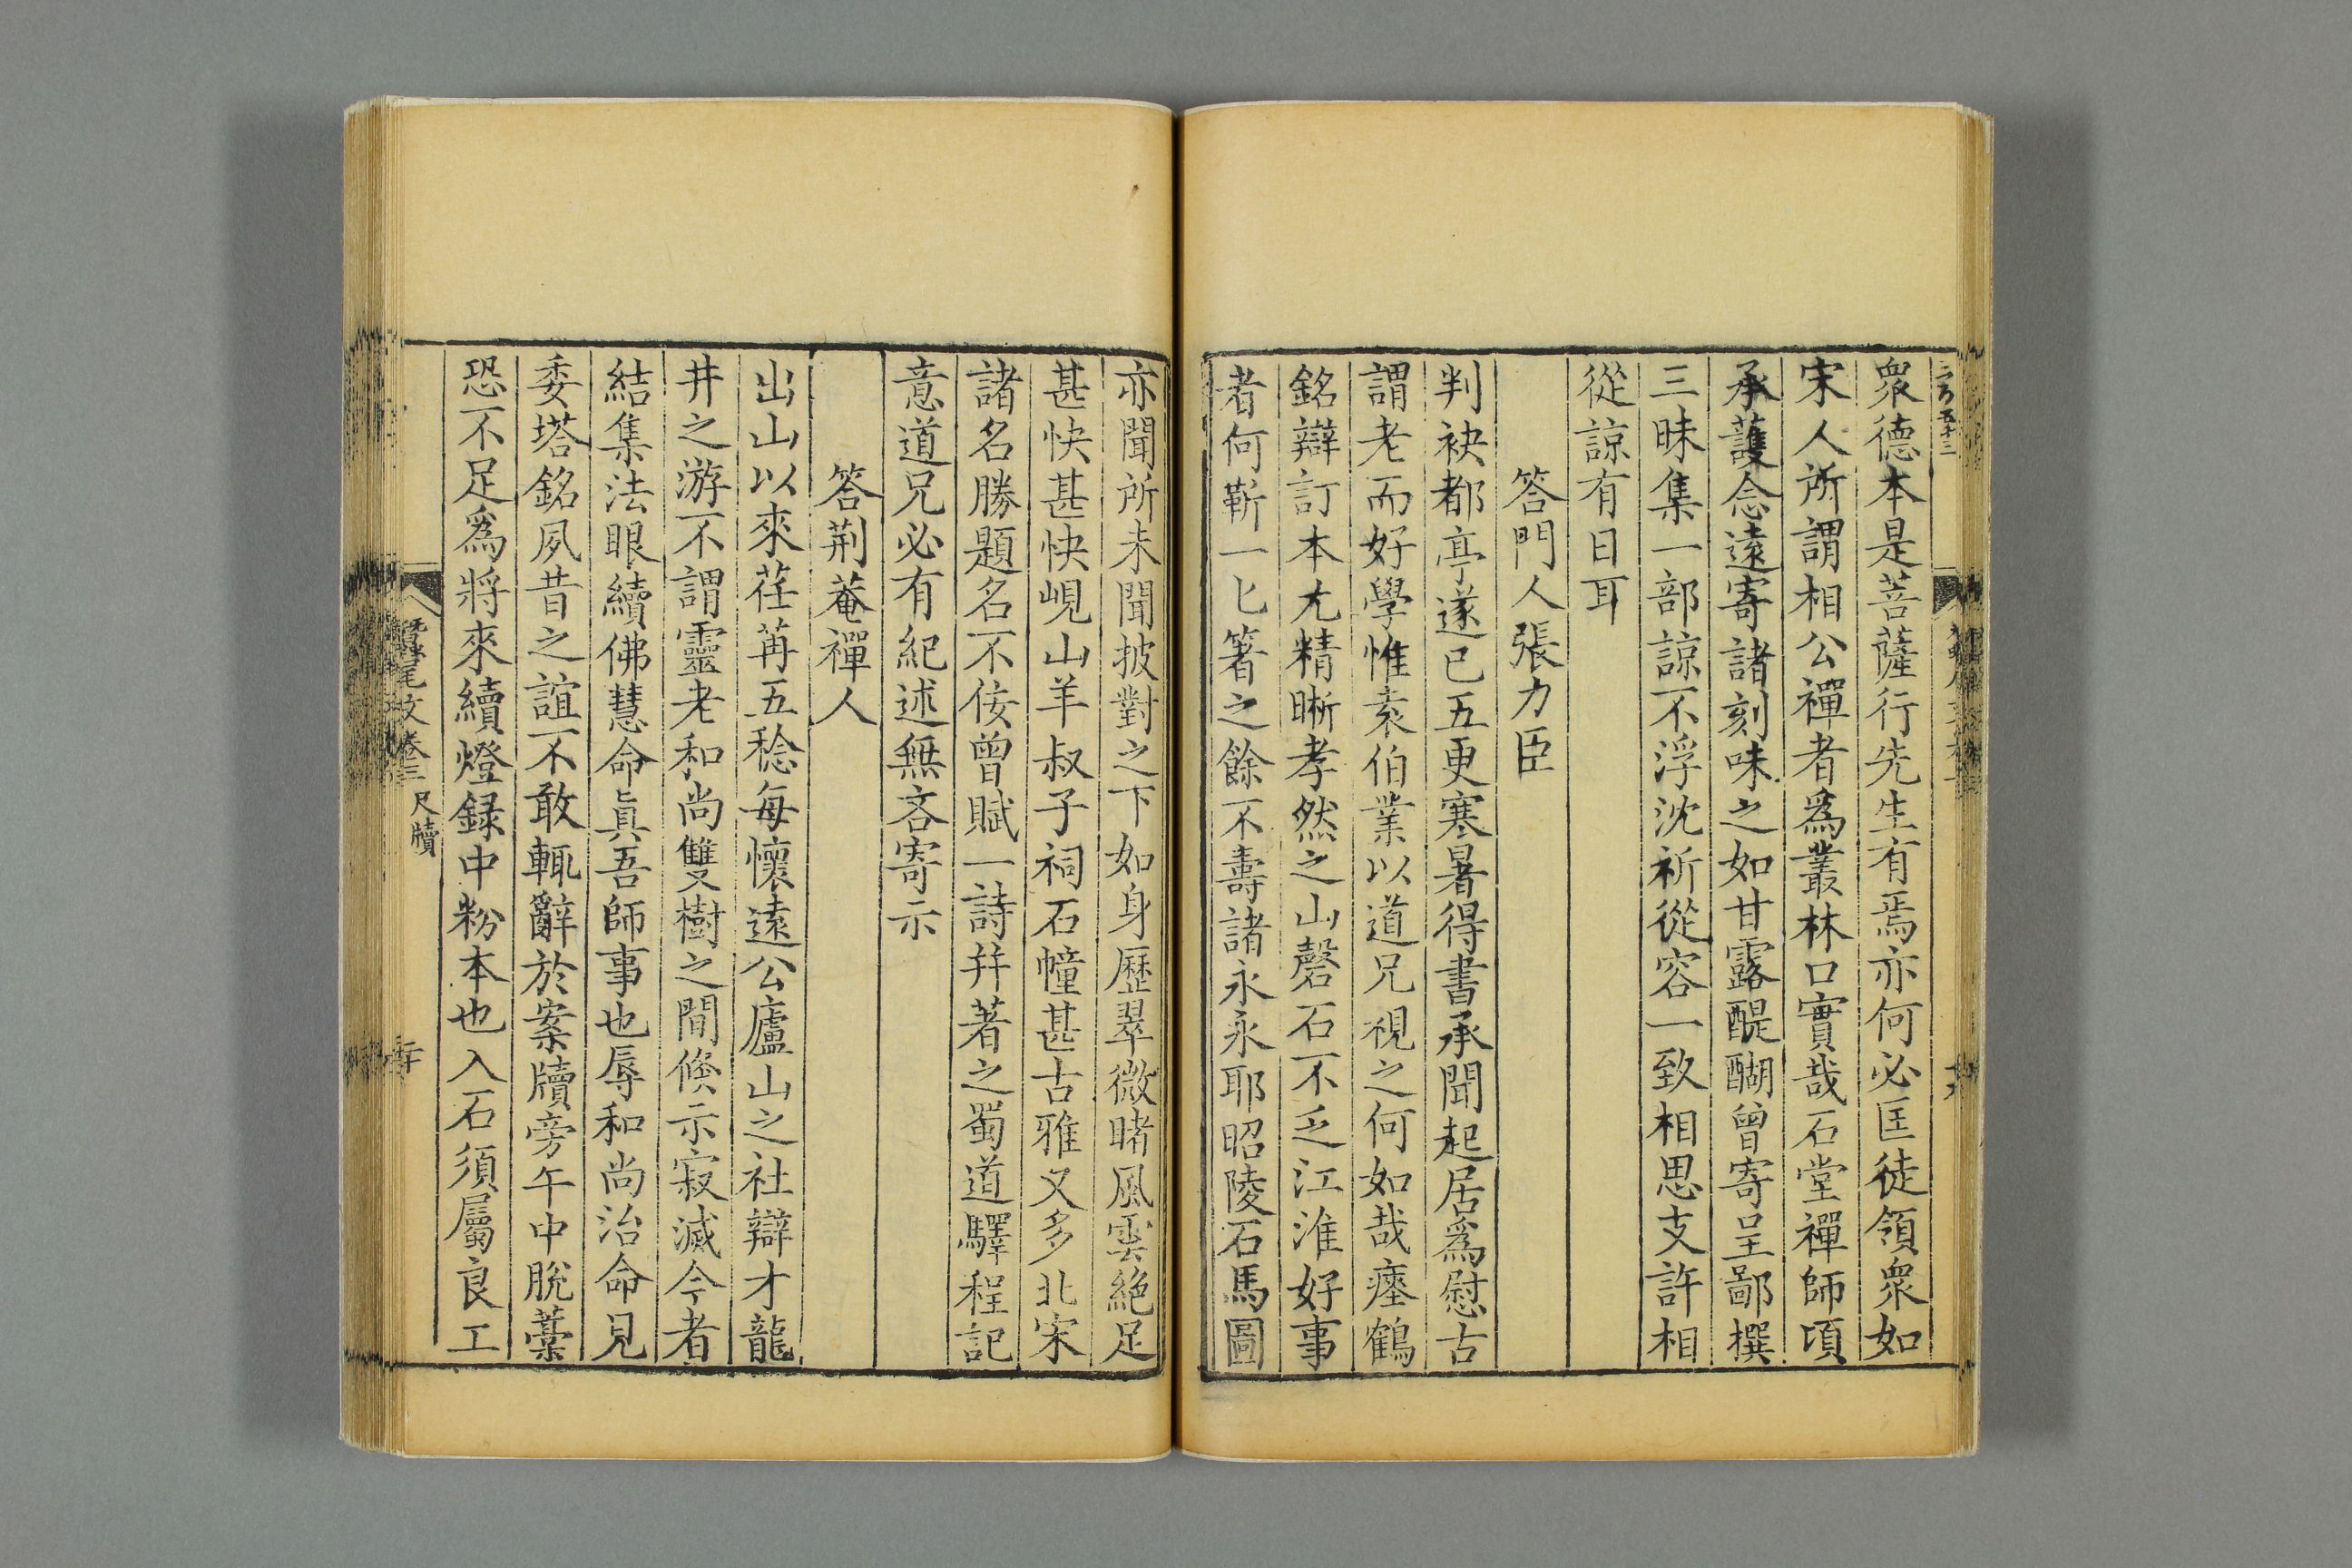 衆德本是菩薩行先生有焉亦何必匡徒領衆如
宋人所謂相公禪者爲叢林口實哉石堂禪師項
承護念遠寄諸刻味之如甘露醍醐曾寄呈鄙撰
三昧集一部諒不浮沈祈從容一致相思支許相
從諒有日耳
答門人張力臣
判袂都亭遂已五更寒暑得書承聞起居爲慰古
謂老而好學惟袁伯業以道兄視之何如哉瘞鶴
銘辯訂本尤精晰孝然之山磬石不乏江淮好事
者何靳一匕箸之餘不壽諸永永耶昭陵石馬圖
亦聞所未聞披對之下如身歷翠微睹風雲絕足
甚快甚快峴山羊叔子祠石幢甚古雅又多北宋
諸名勝題名不佞曾賦一詩幷著之蜀道驛程記
意道兄必有紀述無吝寄示
答荆菴禪人
出山以來荏苒五稔每懷遠公廬山之社辯才龍
井之游不謂靈老和尚雙樹之間倐示寂滅今者
結集法眼續佛慧命眞吾師事也辱和尚治命見
委塔銘夙昔之誼不敢輒辭於案牘旁午中脫藁
恐不足爲將來續燈録中粉本也入石須屬良工
蠶尾文卷三 尺牘
二十